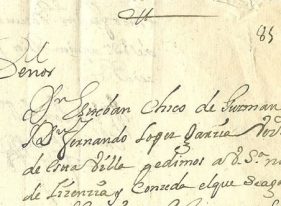 85
Señor
Dn Esteban Chico de Guzman
y Dn Fernando Loper Garcia
de esta Villa pedimos a V. Sª
de Licencia y Conceda el que